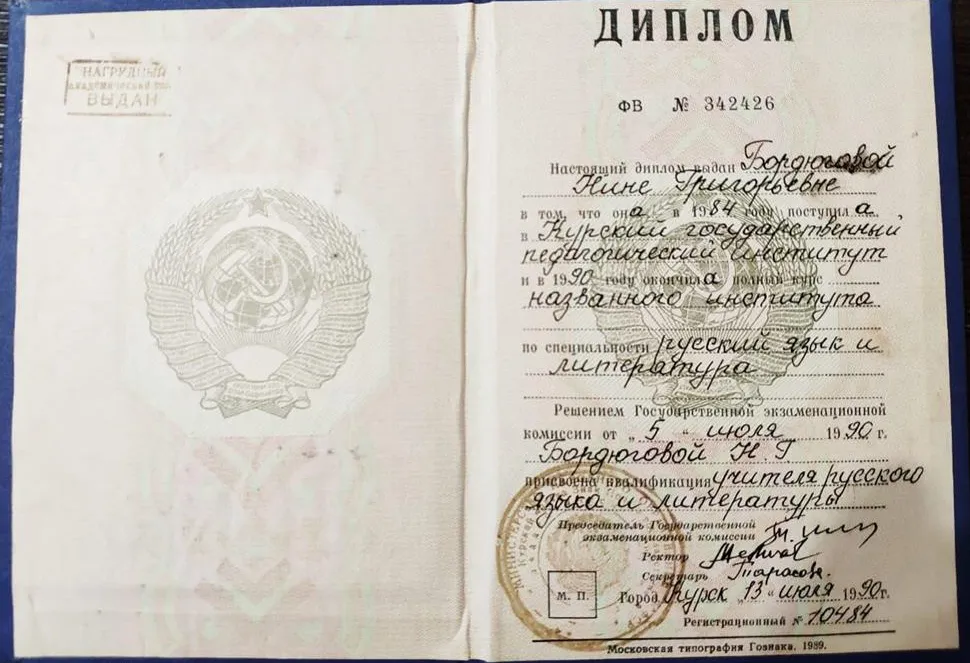 НАГРУДНЫЙ
АКАДЕМИЧЕСКИЙ
ВЫДАН
ДИПЛОМ
ФВ № 342426
Настоящий диплом выдан Бордюговой
Нине Григорьевне
в том, что она в 1984 году поступила
в Курский государственный
педагогический институт
и в 1990 году окончила полный курс
названного института
по специальности русский язык и
литература
Решением Государственной экзаменационной
комиссии от „5“ июля 1990 г.
Бордюговой Н. Г
присвоена квалификация учителя русского
языка и литературы
Председатель Государственной
экзаменационной комиссии
Ректор
Секретарь Тарасов.
М. П.
Город Курск „13“ июля 1990г.
Регистрационный № 10484
Московская типография Гознака. 1989.